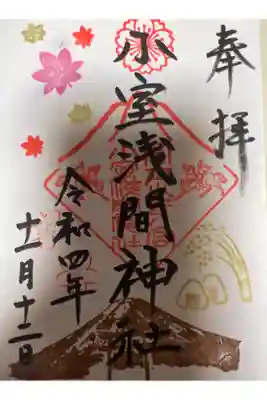 奉拝
小室浅間神社
令和四年
十一月十二日